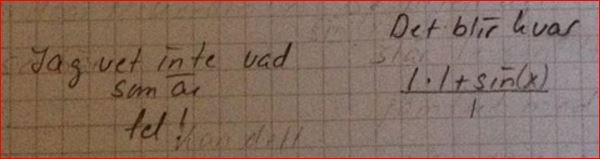 Jag vet inte vad
som är
fel!
Det blir kvar
1·1+sin(x)
1